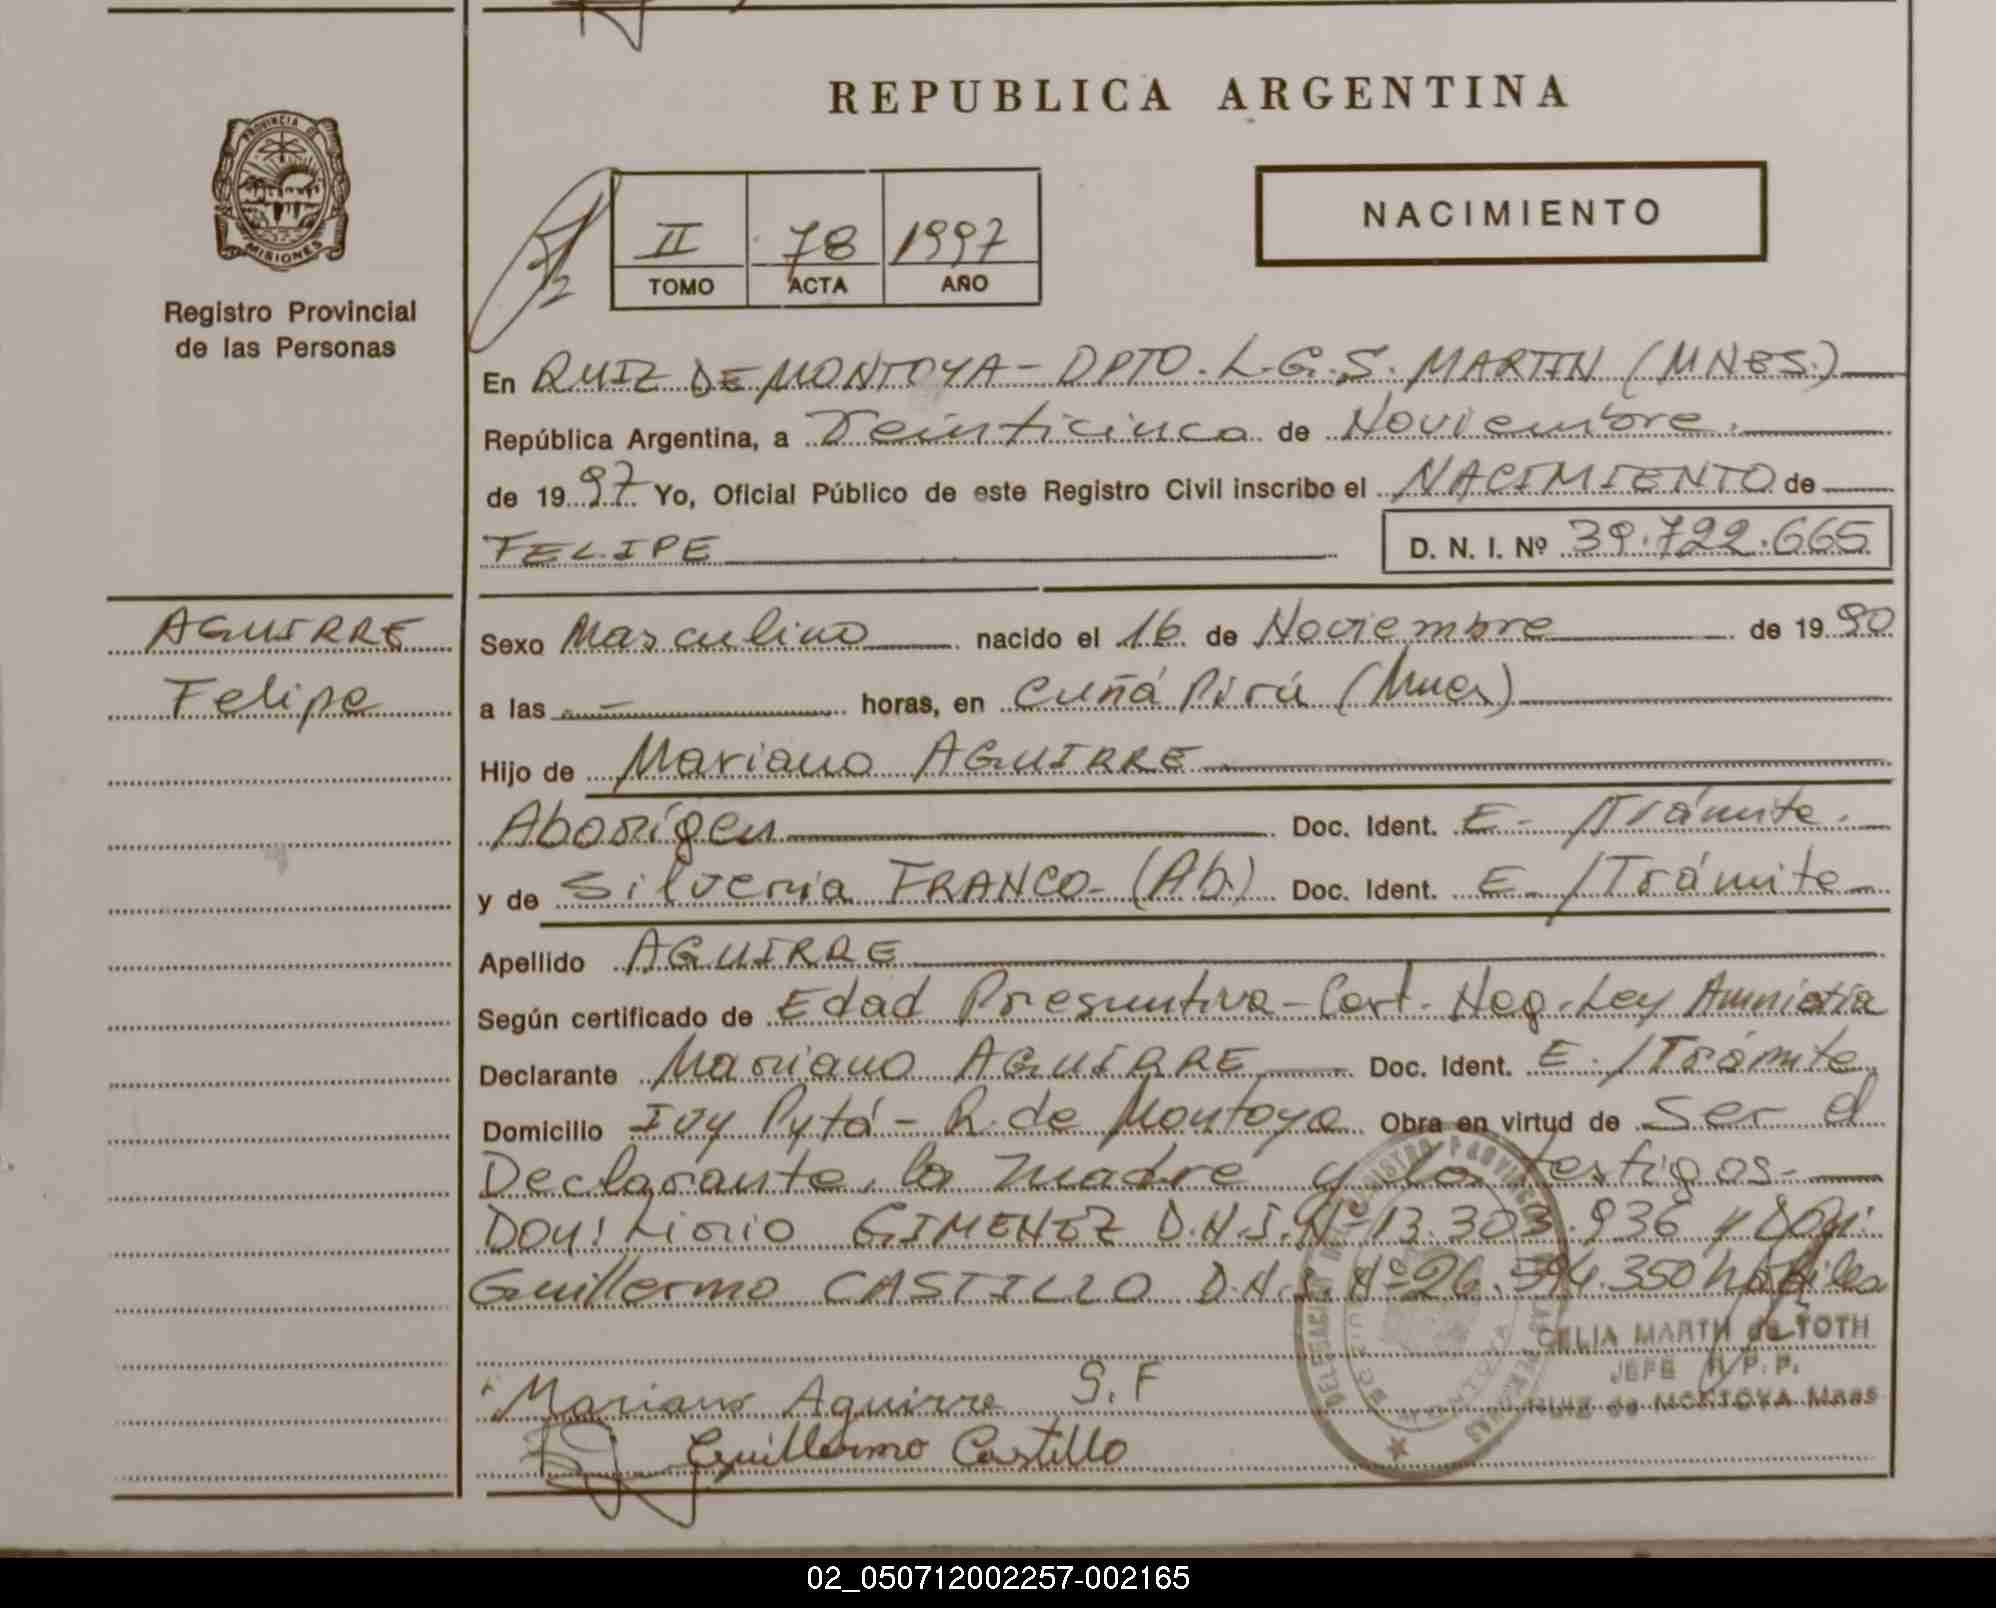 REPUBLICA ARGENTINA
PROVINCIA DE MISIONES
Registro Provincial
de las Personas
NACIMIENTO
II 78 1997
TOMO ACTA AÑO
En RUIZ DE MONTOYA - DPTO. L.G.S. MARTIN (MNES.)
República Argentina, a Veinticinco de Noviembre.
de 1997 Yo, Oficial Público de este Registro Civil inscribo el NACIMIENTO de
FELIPE D. N. I. Nº 39.722.665
AGUIRRE
Felipe
Sexo Masculino nacido el 16 de Noviembre de 1990
a las - horas, en Cuñá Pirú (Mnes)
Hijo de Mariano AGUIRRE
Aborígen Doc. Ident. E. /Trámite.
y de Silveria FRANCO - (Ab.) Doc. Ident. E. /Trámite
Apellido AGUIRRE
Según certificado de Edad Presuntiva - Cert. Neg. Ley Amnistía
Declarante Mariano AGUIRRE Doc. Ident. E. /Trámite
Domicilio Ivy Pytá - R. de Montoya Obra en virtud de Ser el
Declarante, la madre y los testigos.
Don: Lirio GIMENEZ D.N.I. Nº 13.303.936 y Don:
Guillermo CASTILLO D.N.I. Nº 26.594.350 hábiles
CELIA MARTH de TOTH
JEFE R.P.P.
RUIZ de MONTOYA Mnes
Mariano Aguirre S.F
Guillermo Castillo
02_050712002257-002165